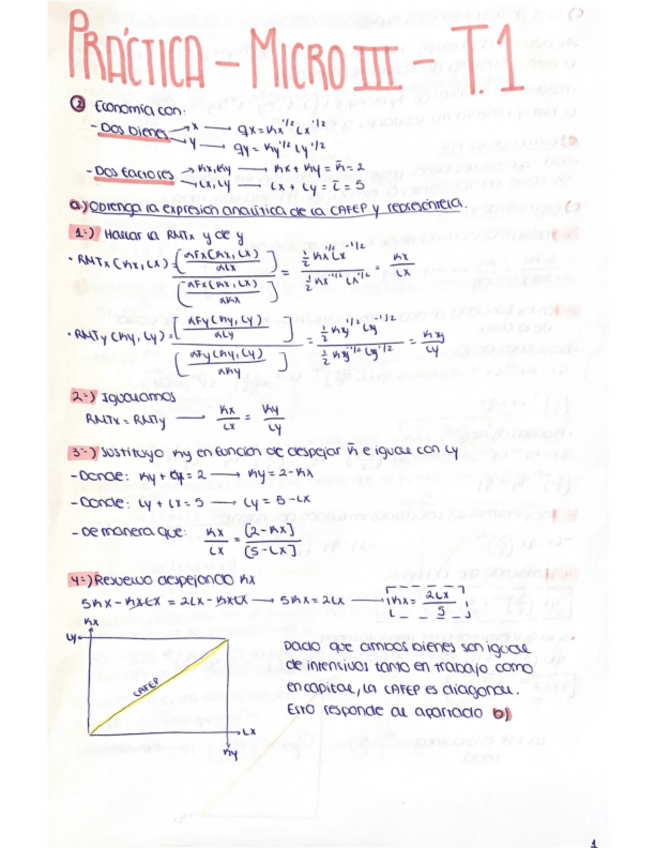 PRÁCTICA – MICRO III – T.1
② Economía con:
- Dos bienes → x → qx = Kx^1/2 Lx^1/2
→ y → qy = Ky^1/2 Ly^1/2
- Dos factores → Kx, Ky → Kx + Ky = K̄ = 2
→ Lx, Ly → Lx + Ly = L̄ = 5
a) Obtenga la expresión analítica de la CAFEP y represéntela.
1º) Hallar la RMTx y de y
· RMTx (Kx, Lx) = [∂Fx(Kx, Lx) / ∂Lx] / [∂Fx(Kx, Lx) / ∂Kx] = (1/2 Kx^1/2 Lx^-1/2) / (1/2 Kx^-1/2 Lx^1/2) = Kx / Lx
· RMTy (Ky, Ly) = [∂Fy(Ky, Ly) / ∂Ly] / [∂Fy(Ky, Ly) / ∂Ky] = (1/2 Ky^1/2 Ly^-1/2) / (1/2 Ky^-1/2 Ly^1/2) = Ky / Ly
2º) Igualamos
RMTx = RMTy → Kx / Lx = Ky / Ly
3º) Sustituyo Ky en función de despejar K̄ e igual con Ly
- Donde: Ky + Kx = 2 → Ky = 2 - Kx
- Donde: Ly + Lx = 5 → Ly = 5 - Lx
- De manera que: Kx / Lx = [2 - Kx] / [5 - Lx]
4º) Resuelvo despejando Kx
5Kx - KxLx = 2Lx - KxLx → 5Kx = 2Lx → Kx = 2Lx / 5
Kx
Ly
CAFEP
Lx
Ky
Dado que ambos bienes son igual
de intensivos tanto en trabajo como
en capital, la CAFEP es diagonal.
Esto responde al apartado b)
1